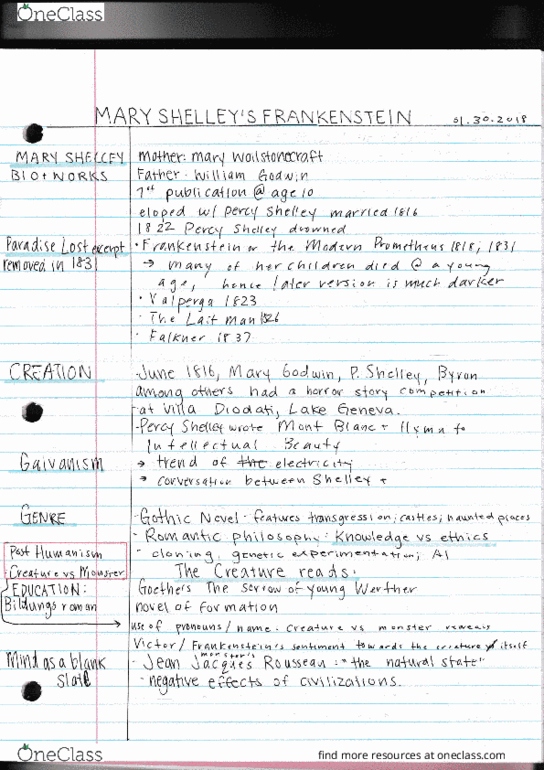 OneClass
MARY SHELLEY'S FRANKENSTEIN 01.30.2018
MARY SHELLEY Mother: Mary Wollstonecraft
BIO + WORKS Father: William Godwin
1st publication @ age 10
eloped w/ Percy Shelley married 1816
1822 Percy Shelley drowned
Paradise Lost excerpt · Frankenstein or the Modern Prometheus 1818, 1831
removed in 1831 → many of her children died @ a young
age, hence later version is much darker
· Valperga 1823
· The Last Man 1826
· Falkner 1837
CREATION - June 1816, Mary Godwin, P. Shelley, Byron
among others had a horror story competition
at Villa Diodati, Lake Geneva.
- Percy Shelley wrote Mont Blanc + Hymn to
Intellectual Beauty
Galvanism → trend of the electricity
→ conversation between Shelley +
GENRE - Gothic Novel - features transgression; castles; haunted places
- Romantic philosophy: Knowledge vs ethics
Post Humanism - cloning, genetic experimentation; AI
Creature vs Monster The Creature reads:
EDUCATION: Goethe's The Sorrow of Young Werther
Bildungsroman novel of formation
use of pronouns / name. Creature vs monster reveals
Victor / Frankenstein's sentiment towards the creature itself
monster's
Mind as a blank - Jean Jacques Rousseau: "the natural state"
slate - negative effects of civilizations.
OneClass find more resources at oneclass.com